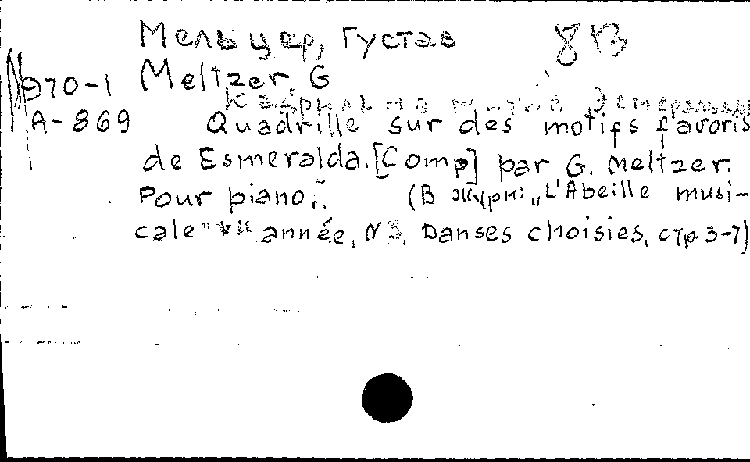 Мельцер, Густав
М 970-1 Meltzer G
Кадриль на
А-869 Quadrille sur des motifs favoris
de Esmeralda. [Comp] par G. Meltzer.
Pour piano. (В журн: „L'Abeille musi-
cale" année, N 3, Danses choisies, стр 3-7)